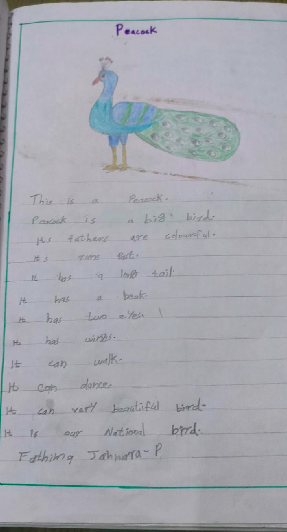 Peacock
This is a Peacock.
Peacock is a big bird.
Its fathers are colourful.
It's runs fast.
It has a long tail
It has a beak.
It has two eyes
It has wings.
It can walk.
It can dance.
It can vary beautiful bird.
It is our National bird.
Fathima Jahnara - P